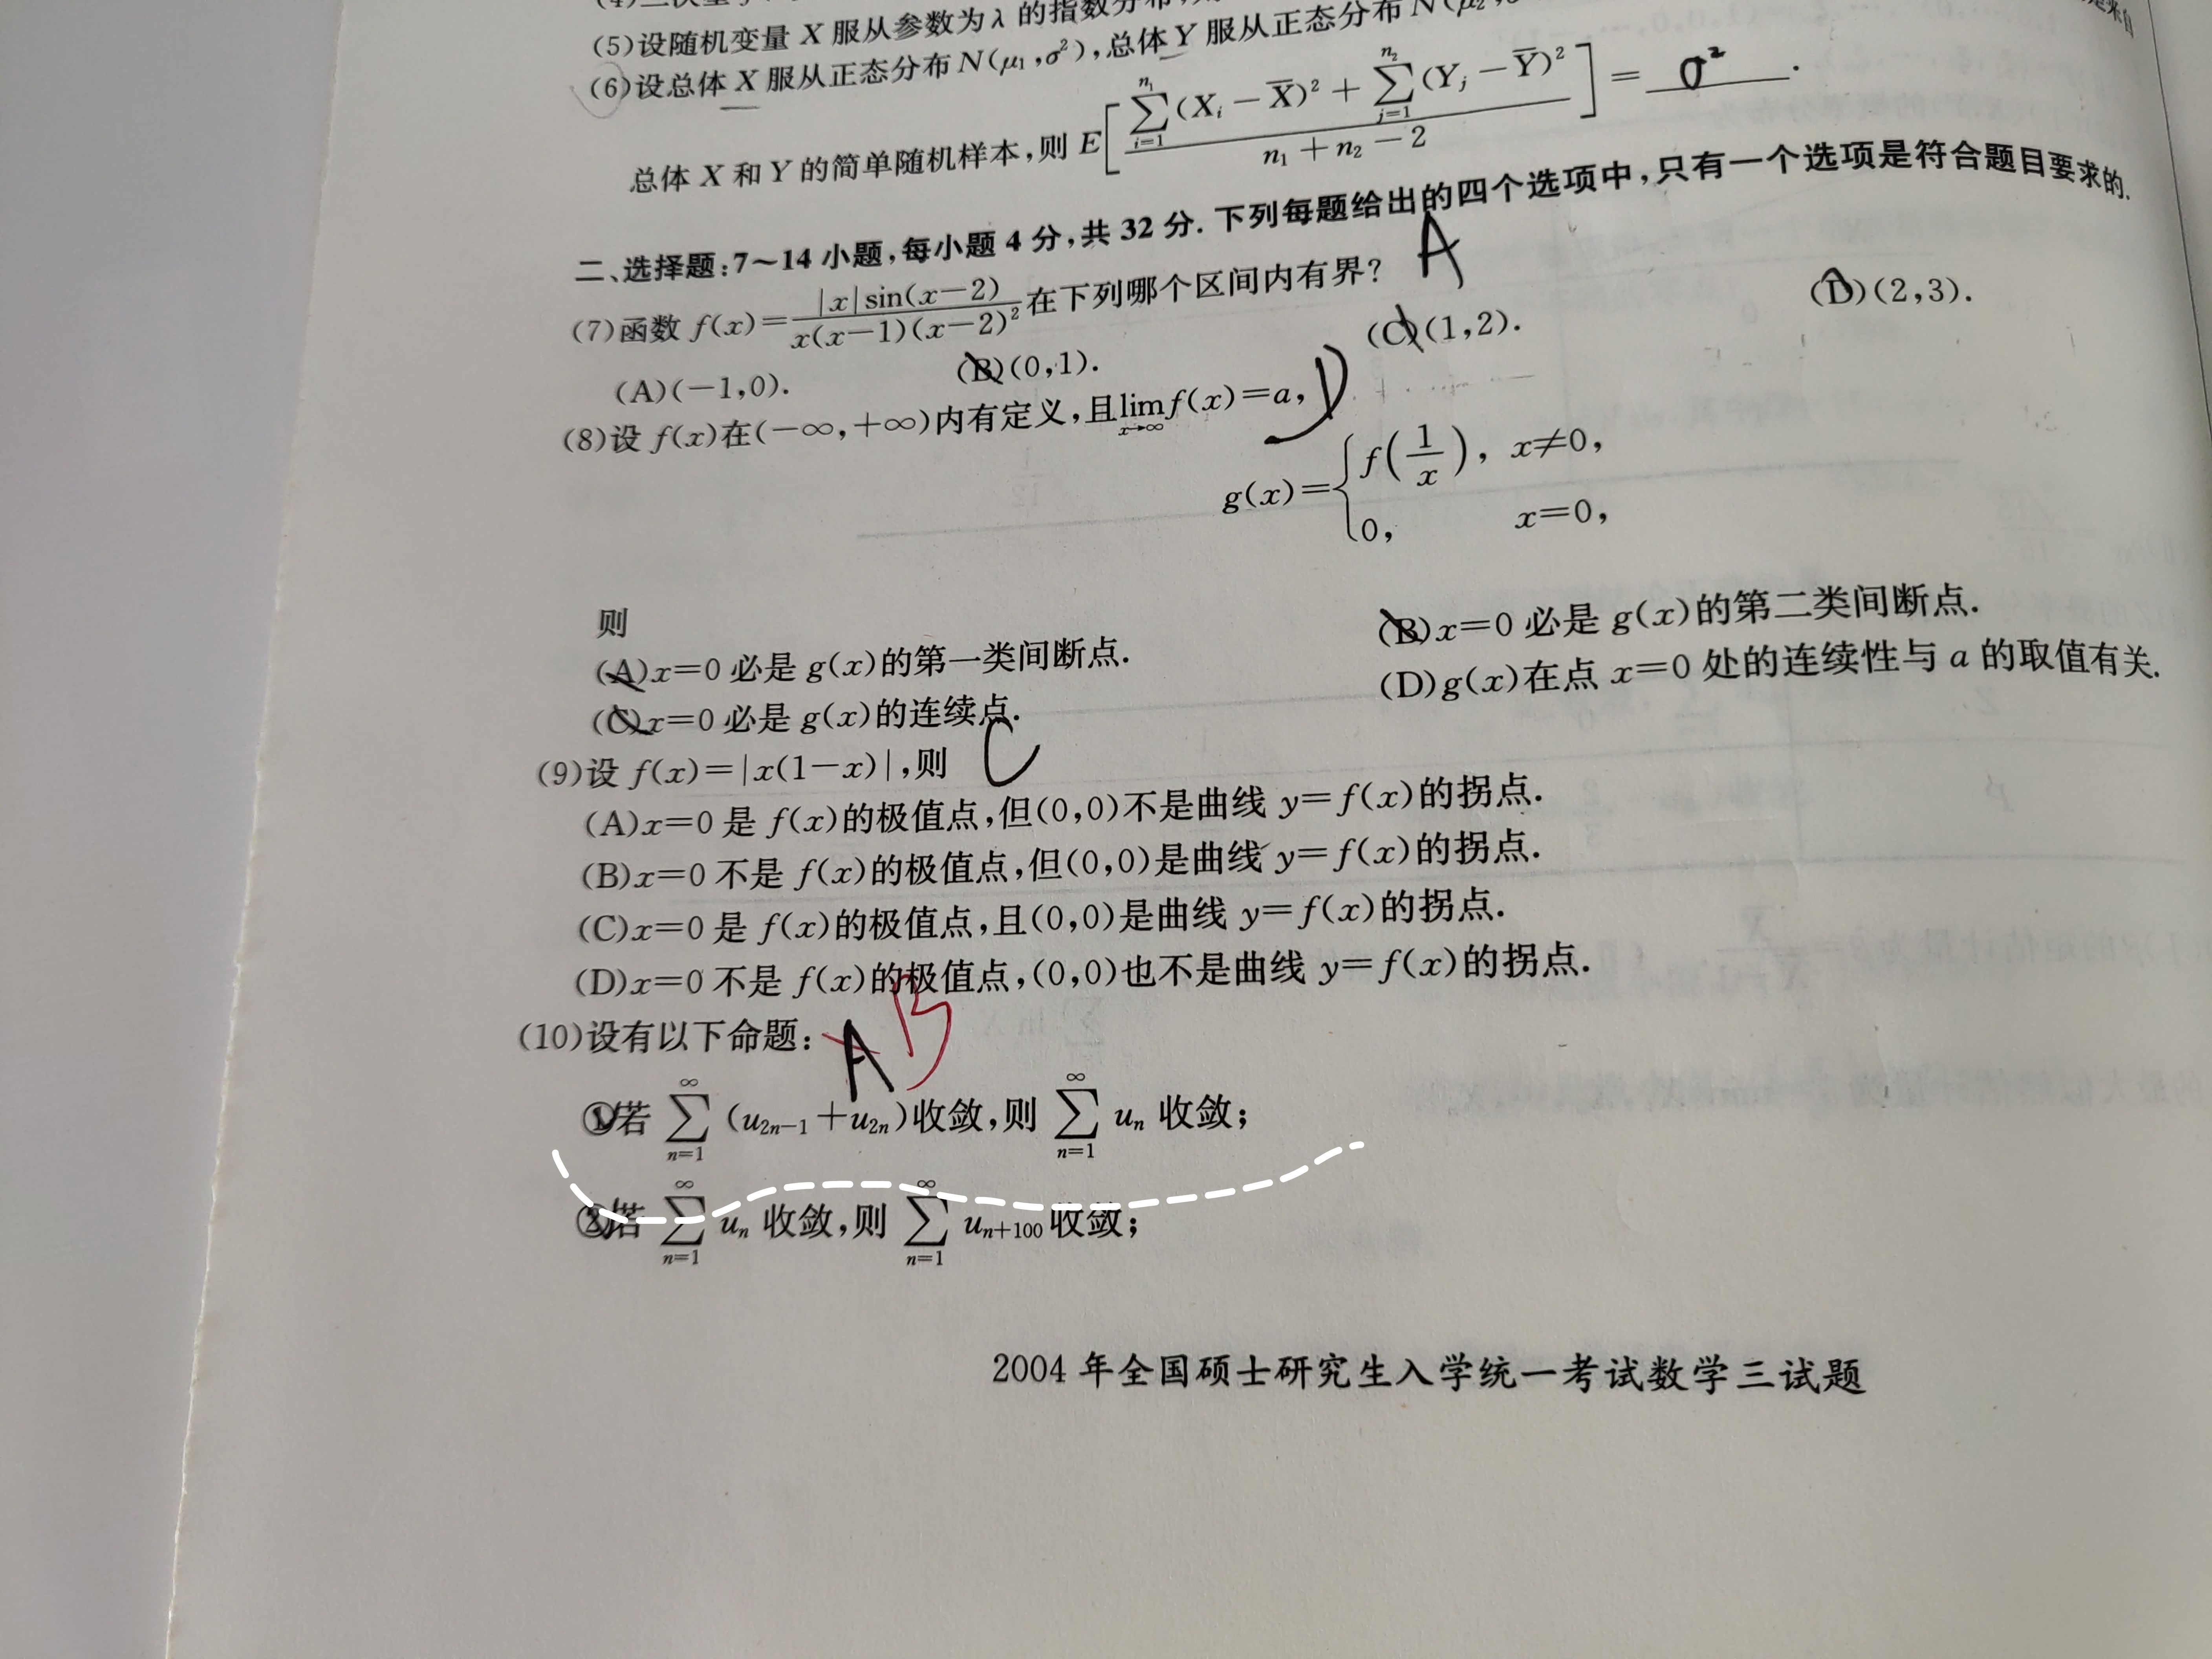 (5)设随机变量 X 服从参数为 λ 的指数分布,
(6)设总体 X 服从正态分布 N(μ₁,σ²),总体 Y 服从正态分布 N(μ₂,
总体 X 和 Y 的简单随机样本,则 E[ (∑_{i=1}^{n₁}(Xᵢ−X̄)²+∑_{j=1}^{n₂}(Yⱼ−Ȳ)²)/(n₁+n₂−2) ] = σ² .
二、选择题:7~14 小题,每小题 4 分,共 32 分. 下列每题给出的四个选项中,只有一个选项是符合题目要求的.
(7)函数 f(x)=|x|sin(x−2)/(x(x−1)(x−2)²) 在下列哪个区间内有界? A
(A)(−1,0). (B)(0,1). (C)(1,2). (D)(2,3).
(8)设 f(x)在(−∞,+∞)内有定义,且lim_{x→∞} f(x)=a, D
g(x)={ f(1/x), x≠0,
0, x=0,
则
(A)x=0 必是 g(x)的第一类间断点. (B)x=0 必是 g(x)的第二类间断点.
(C)x=0 必是 g(x)的连续点. (D)g(x)在点 x=0 处的连续性与 a 的取值有关.
(9)设 f(x)=|x(1−x)|,则 C
(A)x=0 是 f(x)的极值点,但(0,0)不是曲线 y=f(x)的拐点.
(B)x=0 不是 f(x)的极值点,但(0,0)是曲线 y=f(x)的拐点.
(C)x=0 是 f(x)的极值点,且(0,0)是曲线 y=f(x)的拐点.
(D)x=0 不是 f(x)的极值点,(0,0)也不是曲线 y=f(x)的拐点.
(10)设有以下命题: A B
①若 ∑_{n=1}^{∞} (u_{2n−1}+u_{2n})收敛,则 ∑_{n=1}^{∞} uₙ 收敛;
②若 ∑_{n=1}^{∞} uₙ 收敛,则 ∑_{n=1}^{∞} u_{n+100} 收敛;
2004 年全国硕士研究生入学统一考试数学三试题